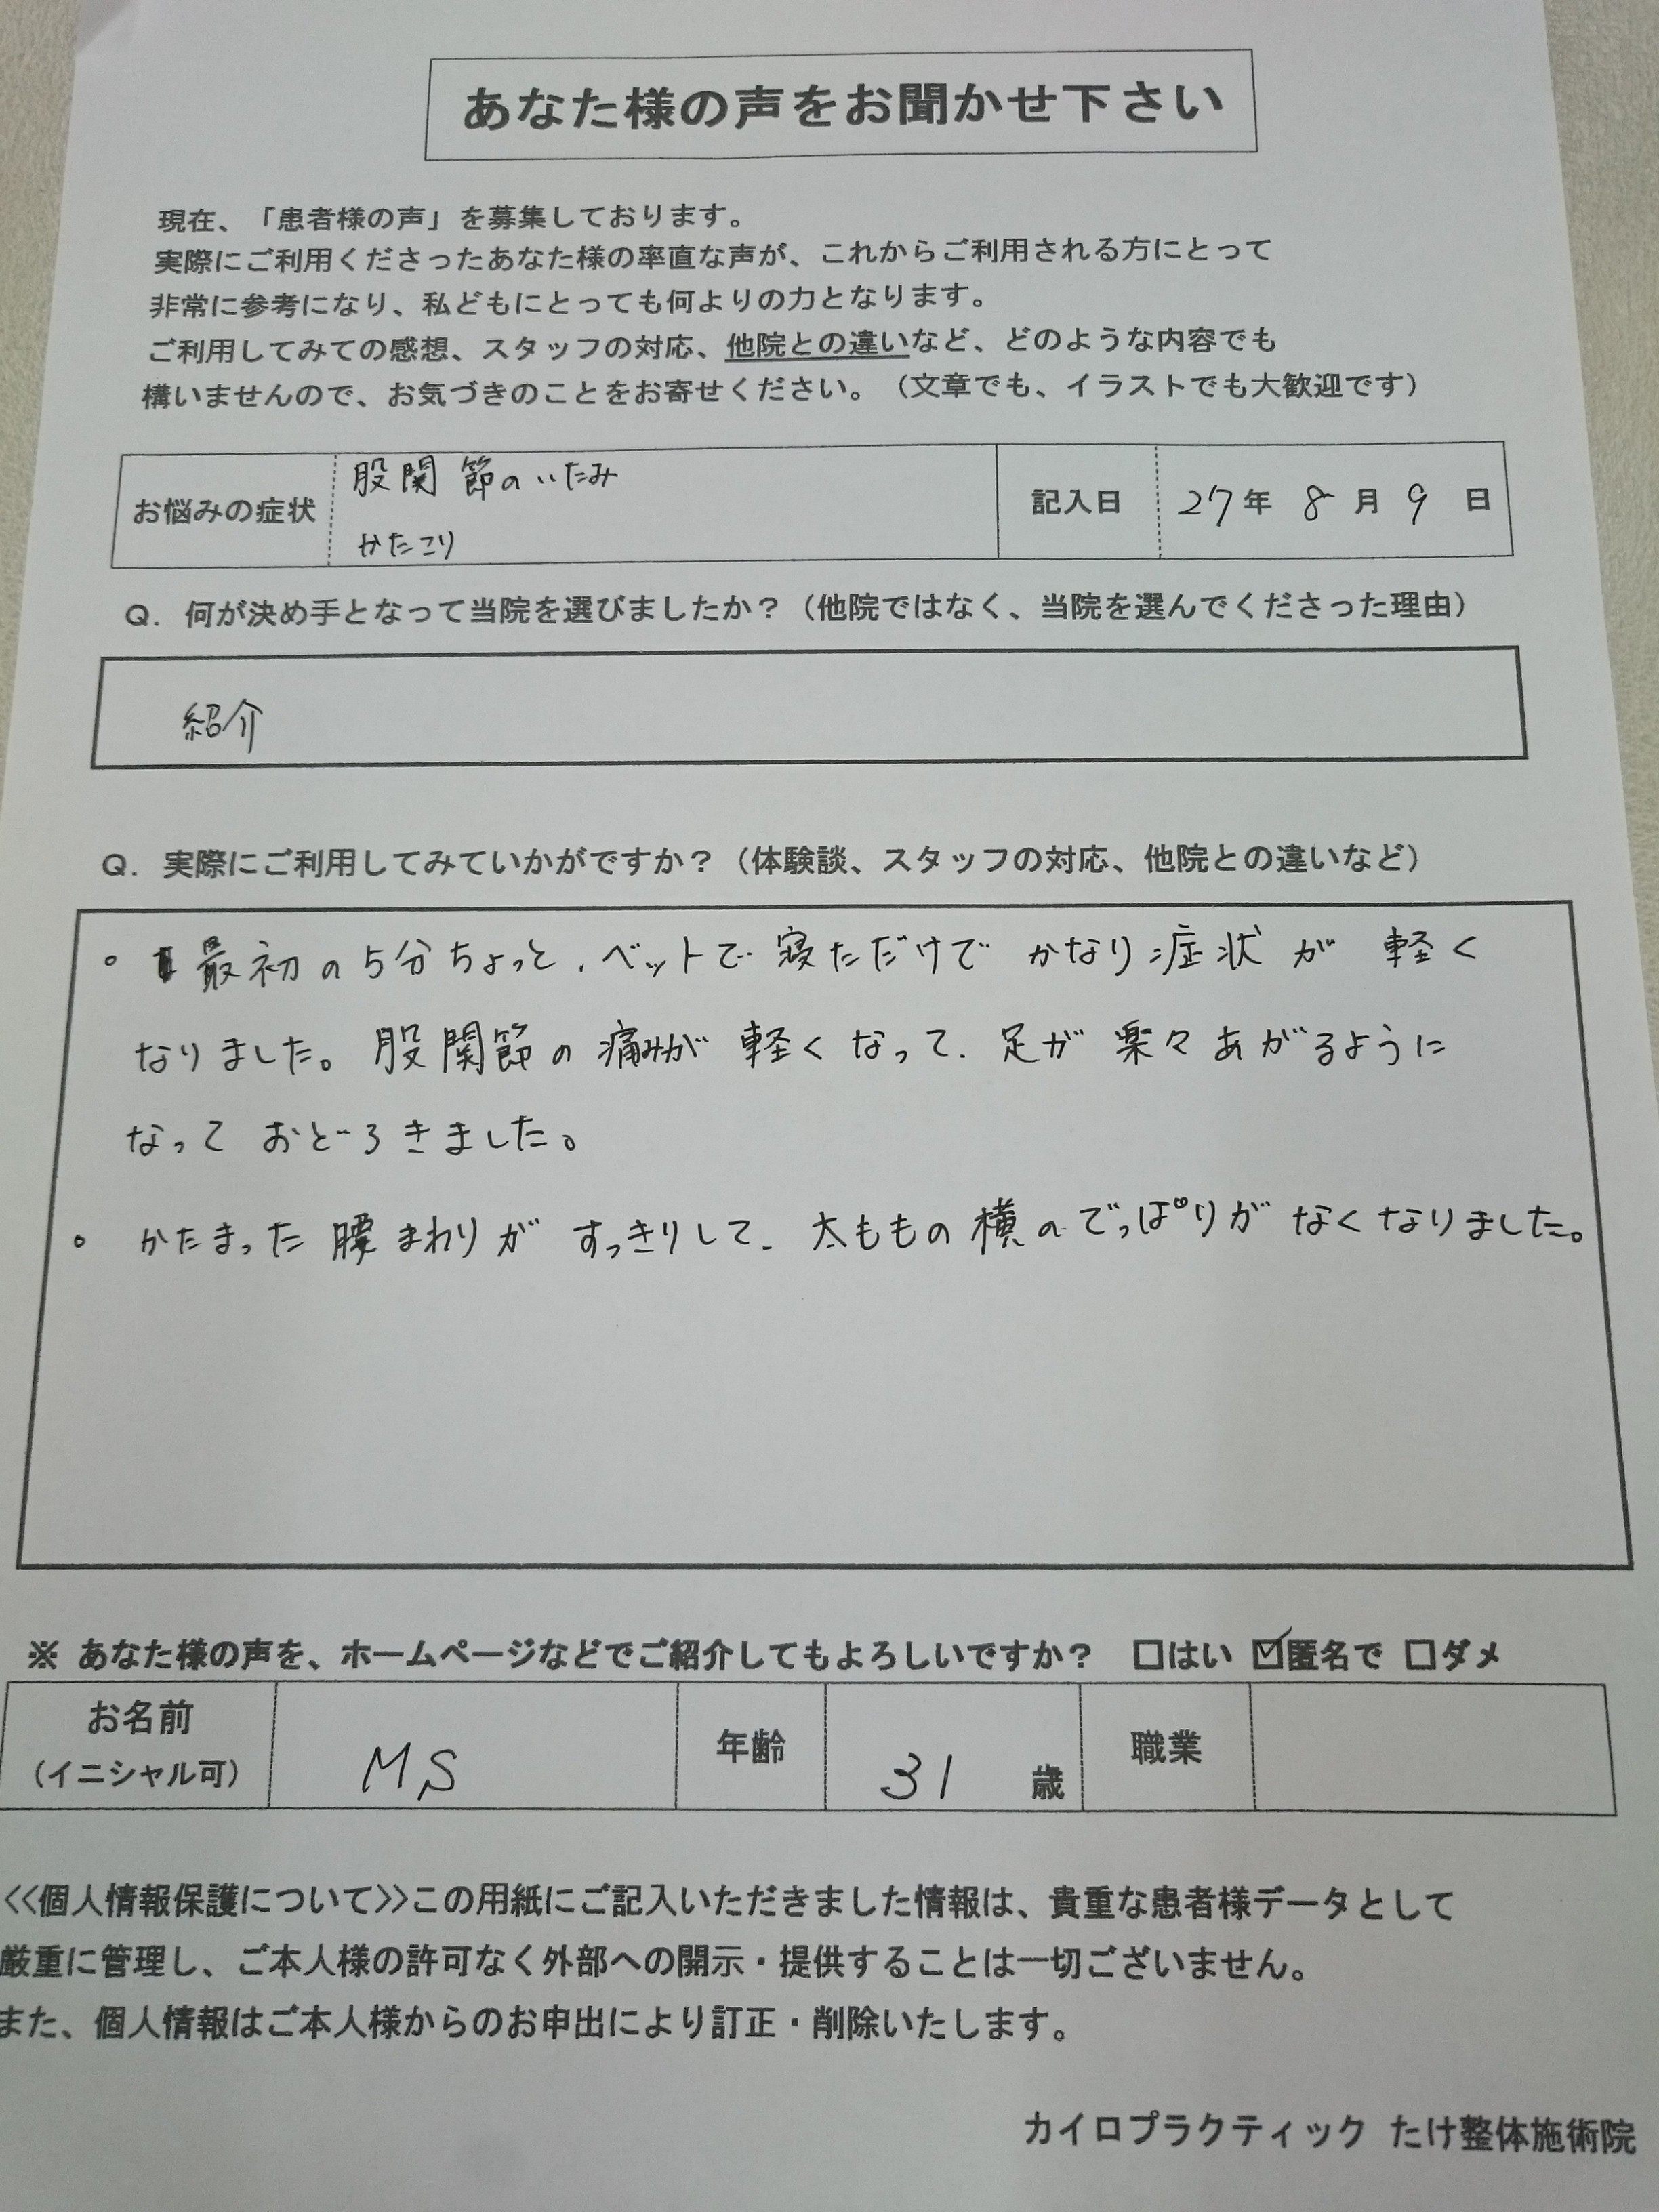 あなた様の声をお聞かせ下さい
現在、「患者様の声」を募集しております。
実際にご利用くださったあなた様の率直な声が、これからご利用される方にとって
非常に参考になり、私どもにとっても何よりの力となります。
ご利用してみての感想、スタッフの対応、他院との違いなど、どのような内容でも
構いませんので、お気づきのことをお寄せください。（文章でも、イラストでも大歓迎です）
お悩みの症状 股関節のいたみ
かたこり
記入日 27年 8月 9日
Q. 何が決め手となって当院を選びましたか？（他院ではなく、当院を選んでくださった理由）
紹介
Q. 実際にご利用してみていかがですか？（体験談、スタッフの対応、他院との違いなど）
。最初の5分ちょっと、ベットで寝ただけでかなり症状が軽く
なりました。股関節の痛みが軽くなって、足が楽々あがるように
なっておどろきました。
。かたまった腰まわりがすっきりして、太ももの横のでっぱりがなくなりました。
※ あなた様の声を、ホームページなどでご紹介してもよろしいですか？ □はい ☑匿名で □ダメ
お名前
（イニシャル可） MS 年齢 31 歳 職業
<<個人情報保護について>>この用紙にご記入いただきました情報は、貴重な患者様データとして
厳重に管理し、ご本人様の許可なく外部への開示・提供することは一切ございません。
また、個人情報はご本人様からのお申出により訂正・削除いたします。
カイロプラクティック たけ整体施術院